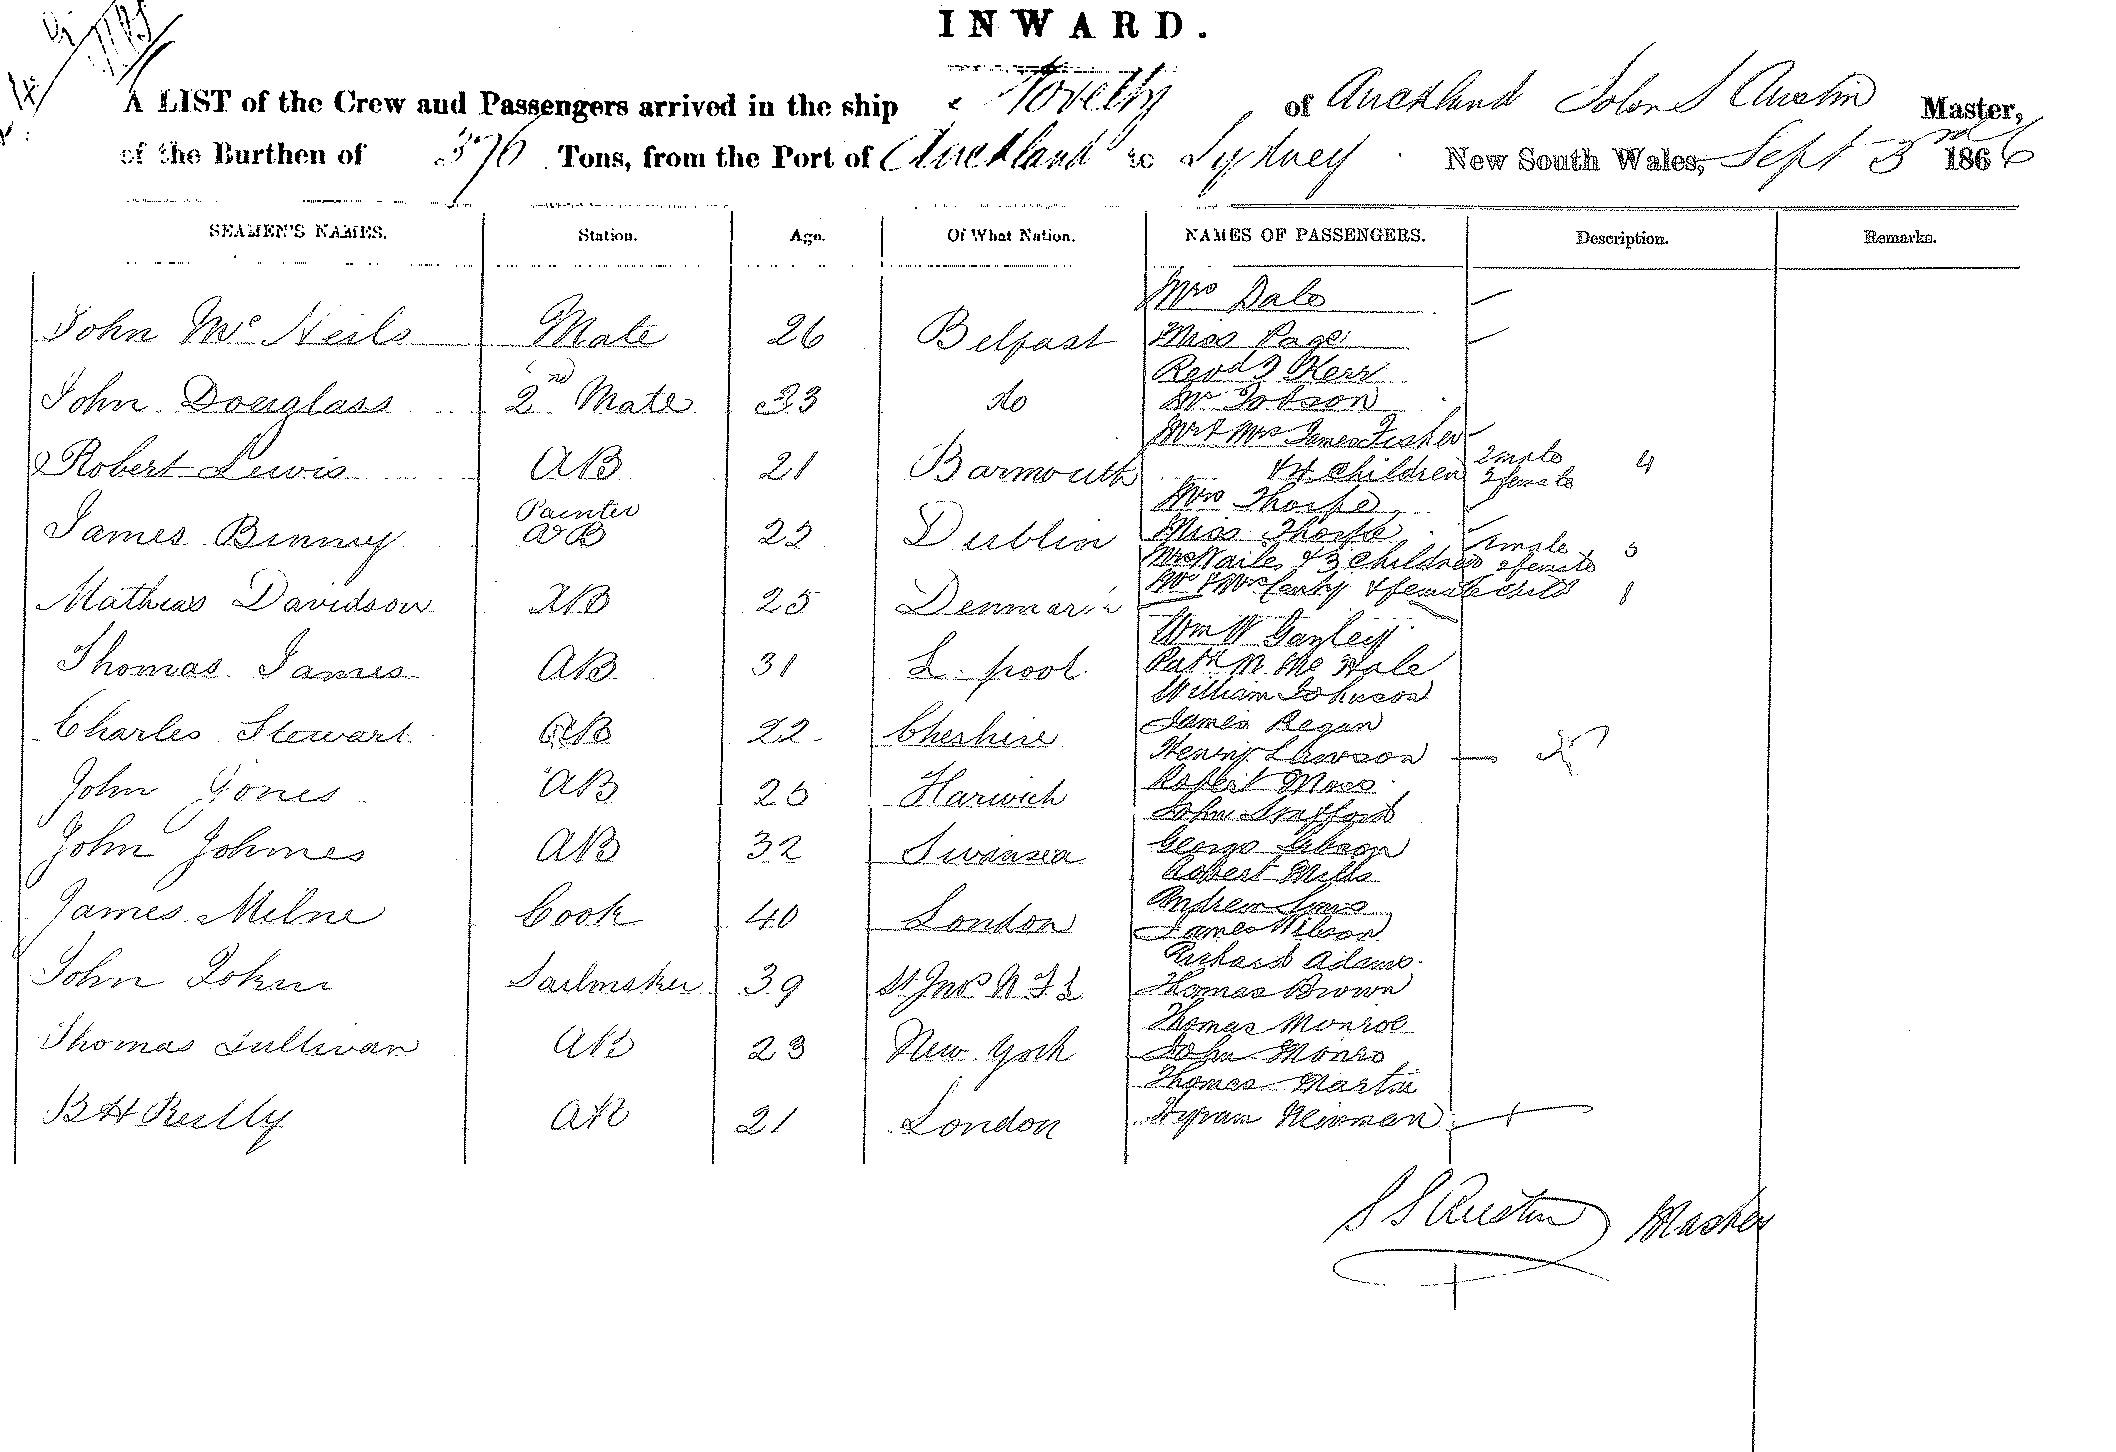 INWARD.
A LIST of the Crew and Passengers arrived in the ship Novelty of Auckland John S Austin Master,
of the Burthen of 376 Tons, from the Port of Auckland to Sydney New South Wales, Sept 3rd 1866
SEAMEN'S NAMES. Station. Age. Of What Nation. NAMES OF PASSENGERS. Description. Remarks.
Mrs Dale
John McNeils Mate 26 Belfast Miss Page
Revd Kerr
John Douglass 2nd Mate 33 do Mr Jobson
Mr & Mrs James Fisher
Robert Lewis AB 21 Barmouth & 4 Children 2 male 4
2 female
Mrs Thorpe
Painter
James Binney AB 22 Dublin Miss Thorpe
Mrs Wailes & 3 Children 1 male 2 female 3
Mathias Davidson AB 25 Denmark Mr & Mrs & female child 1
Wm W Gayley
Thomas James AB 31 L.pool Patk Mc Hale
William Johnson
Charles Stewart AB 22 Cheshire James Regan
Henry Lawson
John Jones AB 25 Harwich Robert Moss
John Stafford
John Johnes AB 32 Swansea George Gibson
Robert Mills
James Milne Cook 40 London Andrew Sims
James Wilson
Richard Adams
John John Sailmaker 39 St Jno's N F L Thomas Brown
Thomas Monroe
Thomas Sullivan AB 23 New York John Monro
Thomas Martin
B H Reilly AB 21 London Hyram Newman
J S Austin Master